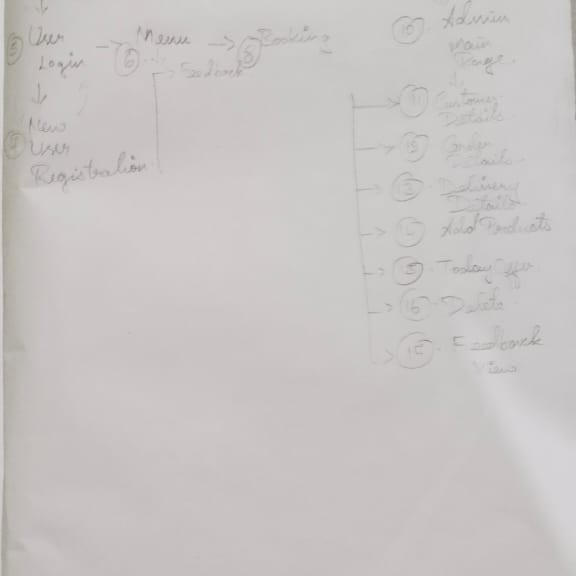 5 User
Login
6 Menu
8 Booking
Feedback
New
User
Registration
10 Admin
Main
Page
11 Customer
Details
Details
13 Delivery
Details
Add Products
Today Offer
16 Delete
Feedback
View